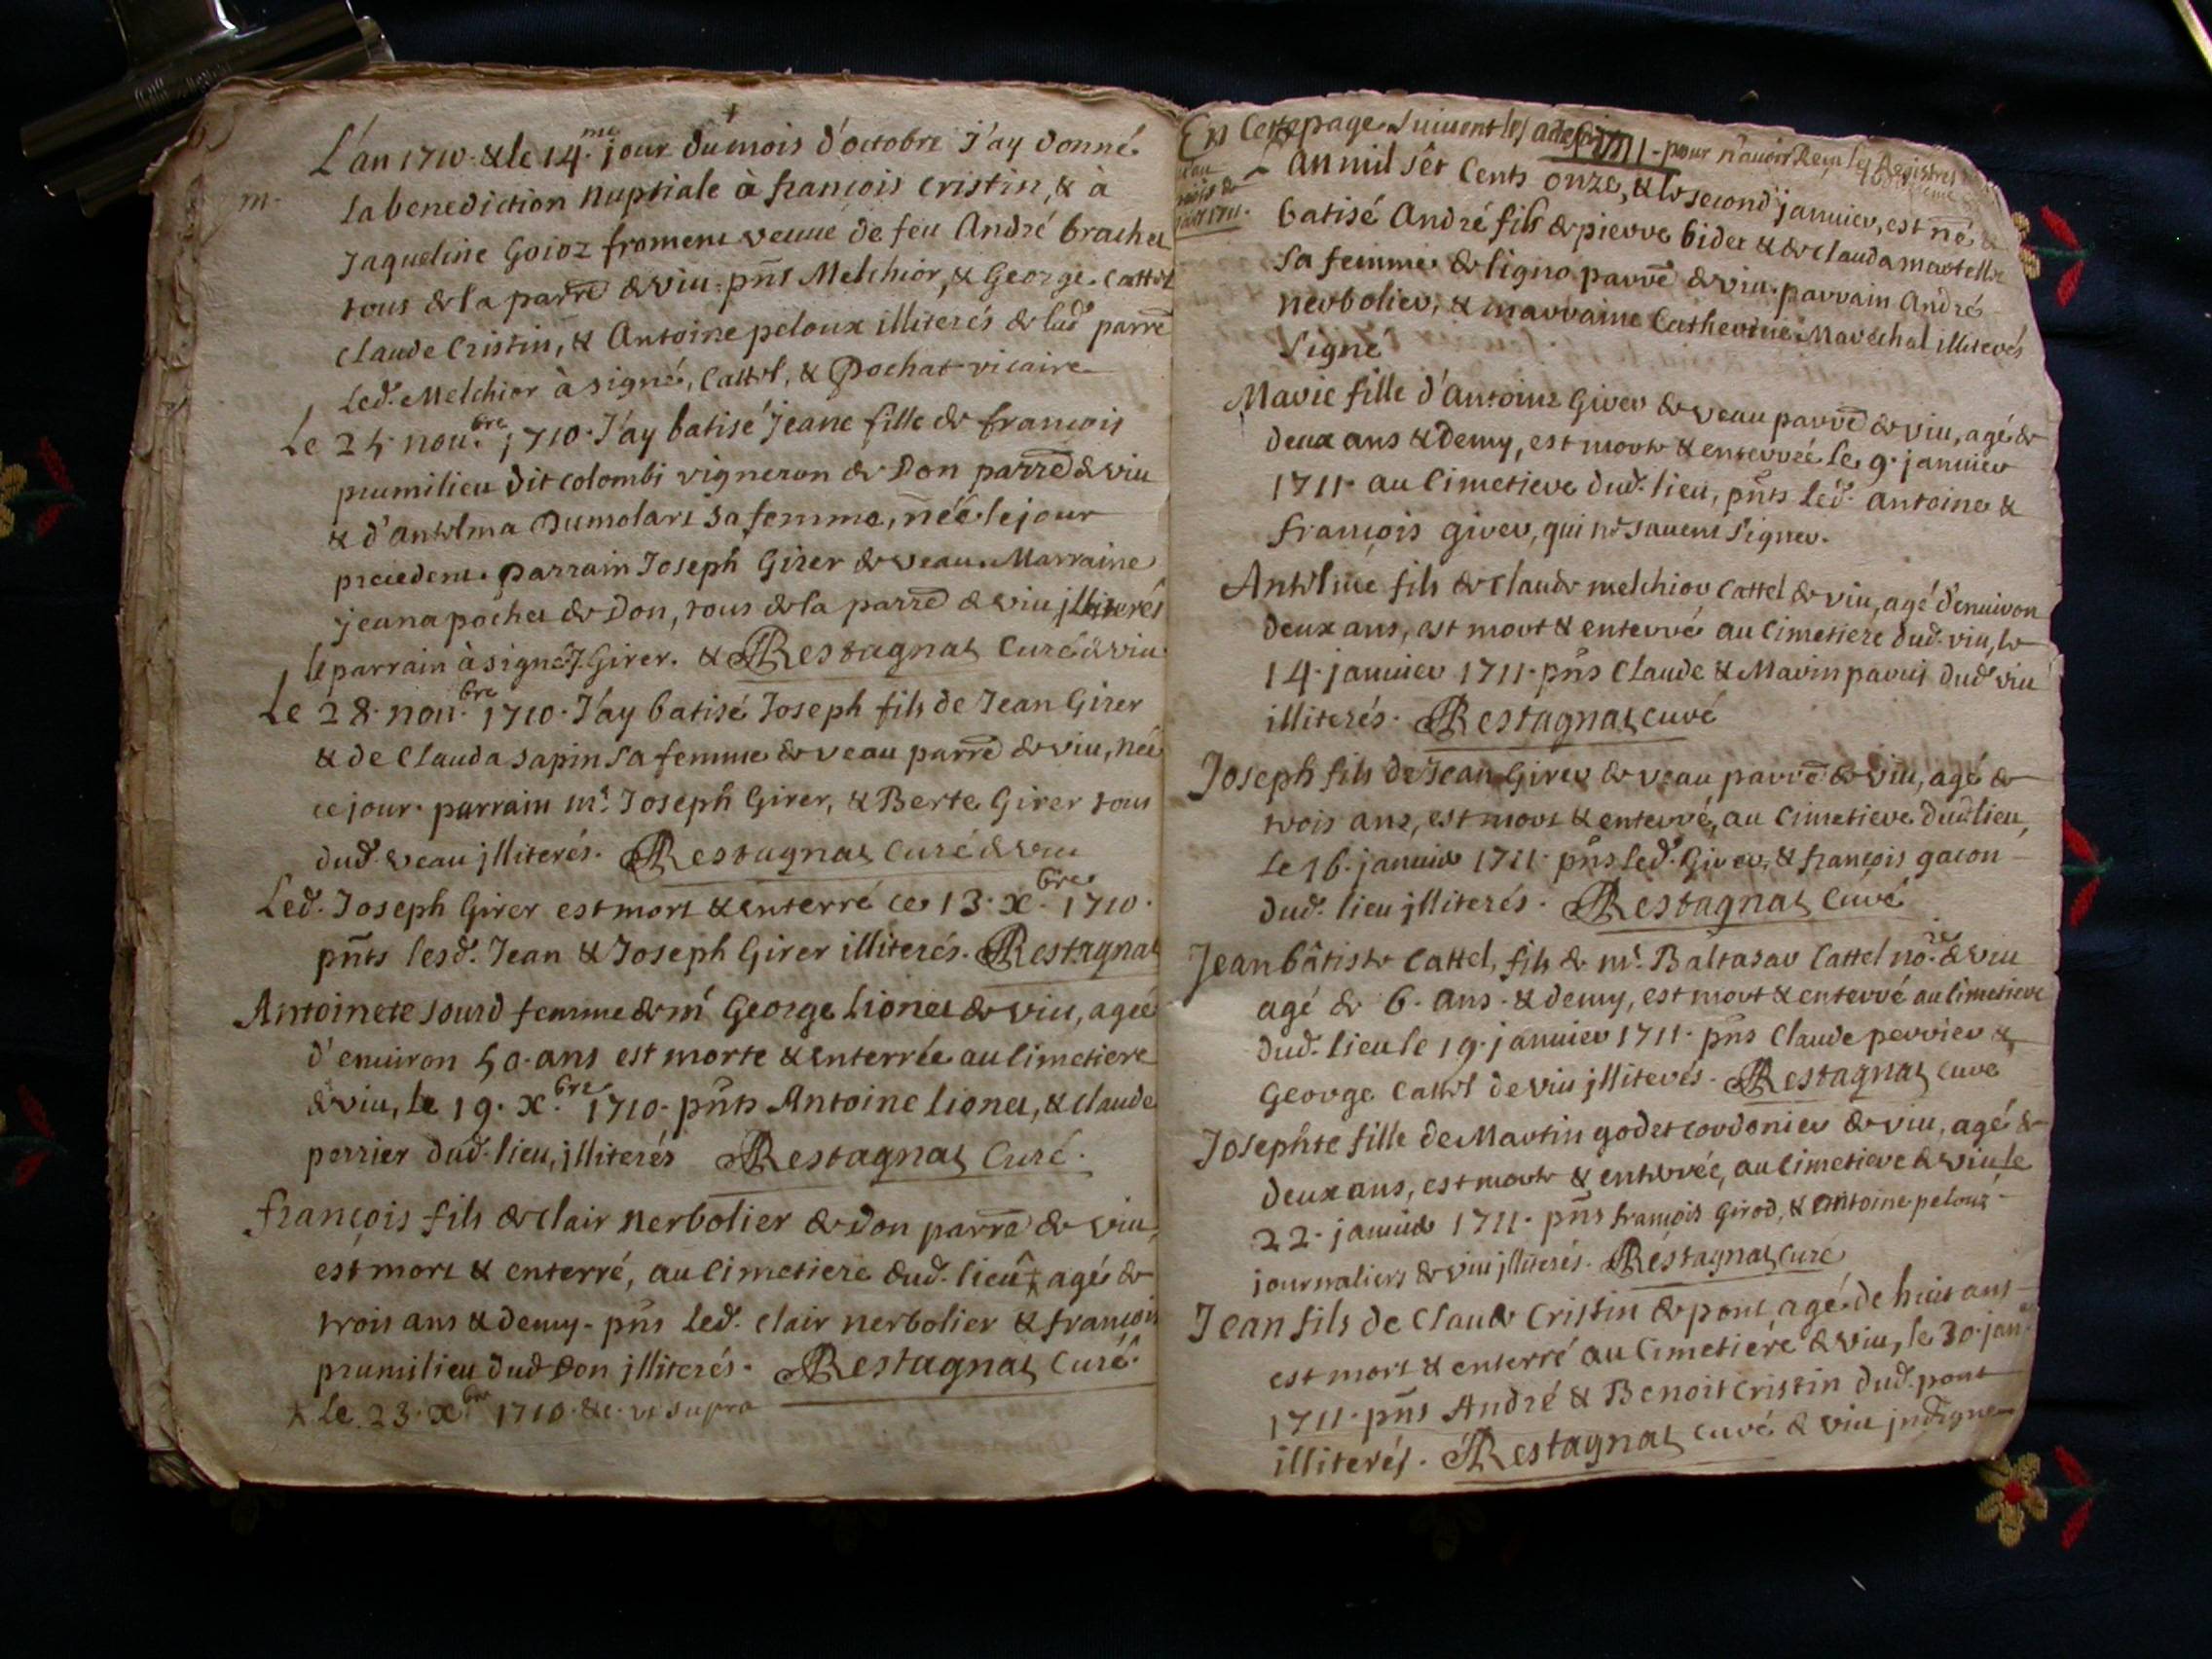 L'an 1710. & le 14.me jour du mois d'octobre J'ay donné
m.
la benediction nuptiale à françois Cristin, & à
Jaqueline Goioz froment veuue de feu André brachet
tous de la parrē de viu. pn̄s Melchior, & George Cattel
Claude Cristin, & Antoine peloux illiterés de lad. parrē
Led. Melchior à signé, Cattel, & Pochat vicaire
Le 25. nou.bre 1710. J'ay batisé Jeane fille de françois
prumilieu dit colombi vigneron de Don parrē de viu
& d'Antelma Dumolart sa femme, née le jour
precedent. parrain Joseph Girer de veau. Marraine
jeana pochet de Don, tous de la parrē de viu jlliterés
le parrain à signé J. Girer. & Restagnat Curé de viu
Le 28. nou.bre 1710. J'ay batisé Joseph fils de Jean Girer
& de Clauda sapin sa femme de veau parrē de viu, né
ce jour. parrain mr. Joseph Girer, & Berte Girer tous
dud. veau jlliterés. Restagnat Curé de viu
Led. Joseph Girer est mort & enterré ce 13. x.bre 1710.
pn̄ts lesd. Jean & Joseph Girer illiterés. Restagnat
Antoinete sourd femme de mr George Lionet de viu, ageé
d'enuiron 50. ans est morte & enterrée au Cimetiere
de viu, le 19. x.bre 1710. pn̄ts Antoine lionet, & Claude
perrier dud. lieu, jlliterés Restagnat Curé.
françois fils de clair nerbolier de Don parrē de viu
est mort & enterré, au Cimetiere dud. lieu * agé de
trois ans & demy. pn̄s Led. clair nerbolier & françois
prumilieu dud Don jlliterés. Restagnat Curé.
* Le 23. xbre 1710. &c. vt supra
En Cette page suiuent les actes 1711. pour n'auoir Receu les Registres
L'an mil set Cents onze, & le second januier, est né &
batisé André fils de pierre bidet & de Clauda martelle
sa femme de ligno parrē de viu. parrain André
nerbolier, & marraine Catherine Maréchal illiterés
signé
Marie fille d'Antoine Girer de veau parrē de viu, agé de
deux ans & demy, est morte & enterrée le 9. januier
1711. au Cimetiere dud. lieu, pn̄ts led. Antoine &
françois girer, qui ne sauent signer.
Antelme fils de Claude melchior Cattel de viu, agé d'enuiron
deux ans, est mort & enterré au Cimetiere dud. viu, le
14. januier 1711. pn̄s Claude & Marin dud viu
illiterés. Restagnat curé
Joseph fils de Jean Girer de veau parrē de viu, agé de
trois ans, est mort & enterré, au Cimetiere dud lieu,
le 16. januier 1711. pn̄s led. Girer, & françois gacon
dud. lieu jlliterés. Restagnat Curé
Jean bâtiste Cattel, fils de mr. Baltasar Cattel no.re de viu
agé de 6. ans. & demy, est mort & enterré au Cimetiere
dud. lieu le 19. januier 1711. pn̄s Claude perrier &
George Cattel de viu jlliterés. Restagnat curé
Josephte fille de Martin godet cordonier de viu, agé de
deux ans, est morte & enterrée, au Cimetiere de viu le
22. januier 1711. pn̄s françois Girod, & Antoine peloux
journaliers de viu jlliterés. Restagnat Curé
Jean fils de Claude Cristin de pont, agé de huit ans
est mort & enterré au Cimetiere de viu, le 30. jan.
1711. pn̄s André & Benoit Cristin dud. pont
illiterés. Restagnat curé de viu jndigne